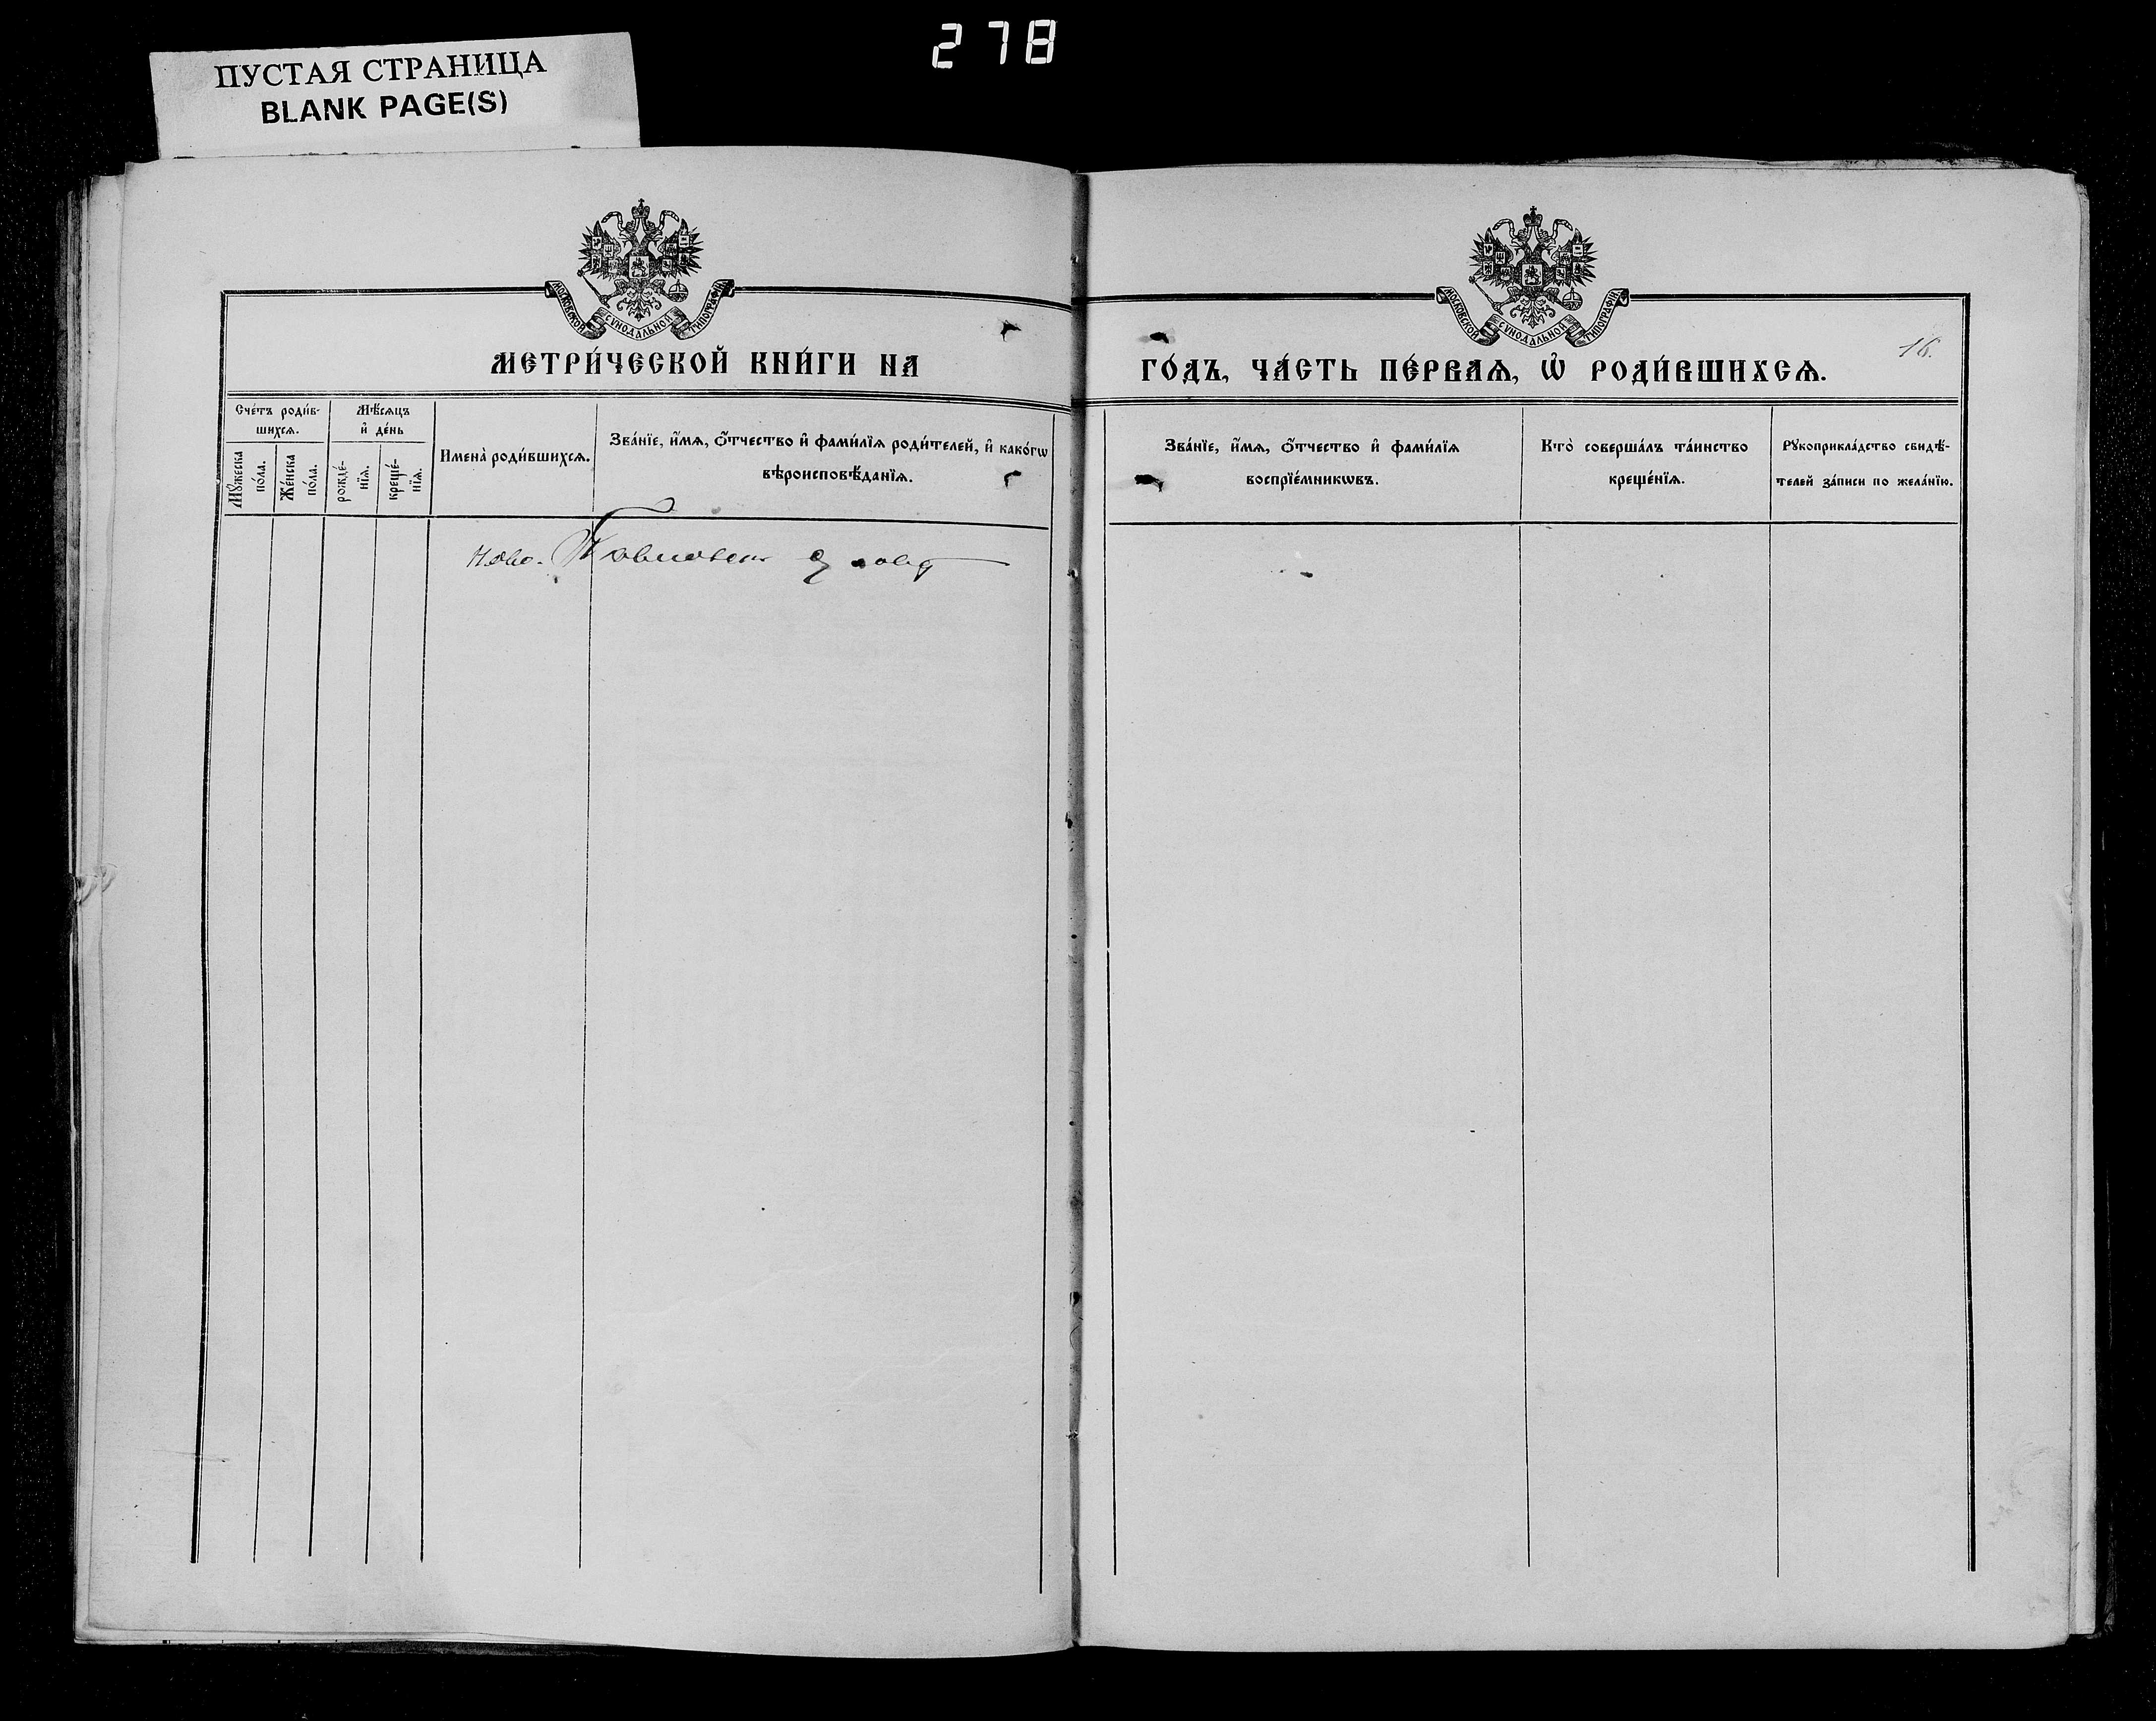 278
ПУСТАЯ СТРАНИЦА
BLANK PAGE(S)
МОСКОВСКОЙ СѴНОДАЛЬНОЙ ТИПОГРАФІИ
МЕТРИ́ЧЕСКОЙ КНИ́ГИ НА
Сче́тъ роди́в-
шихсѧ.
Мѣ́сѧцъ
и҆ де́нь
Мꙋ́жеска
по́ла.
Же́нска
по́ла.
рожде́-
нїѧ.
креще́-
нїѧ.
Имена̀ роди́вшихсѧ.
Зва́нїе, и҆́мѧ, ѻ҆́тчество и҆ фами́лїѧ роди́телей, и҆ како́гѡ
вѣроисповѣ́данїѧ.
Ново-
МОСКОВСКОЙ СѴНОДАЛЬНОЙ ТИПОГРАФІИ
16.
ГО́ДЪ, ЧА́СТЬ ПЕ́РВАѦ, Ѽ РОДИ́ВШИХСѦ.
Зва́нїе, и҆́мѧ, ѻ҆́тчество и҆ фами́лїѧ
воспрїе́мникѡвъ.
Кто̀ соверша́лъ та́инство
креще́нїѧ.
Рꙋкоприкла́дство свидѣ́-
телей за́писи по жела́нїю.